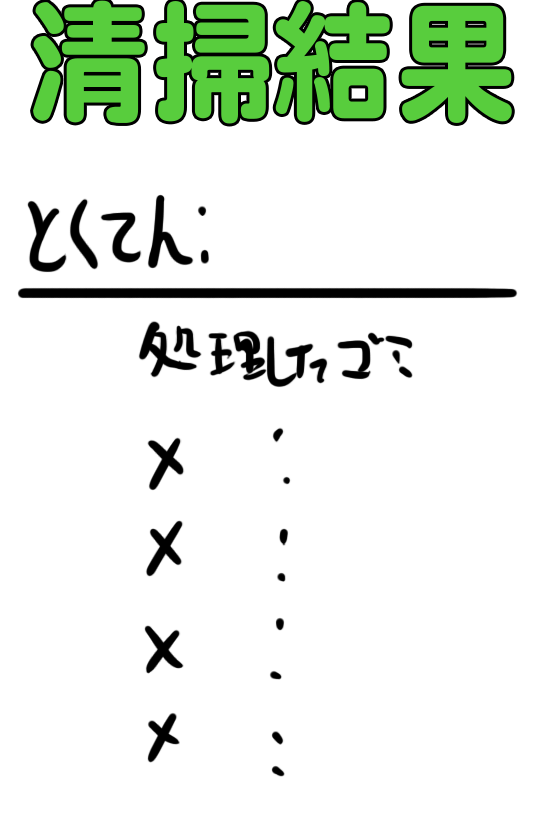 清掃結果
とくてん:
処理したゴミ
× :
× :
× :
× :